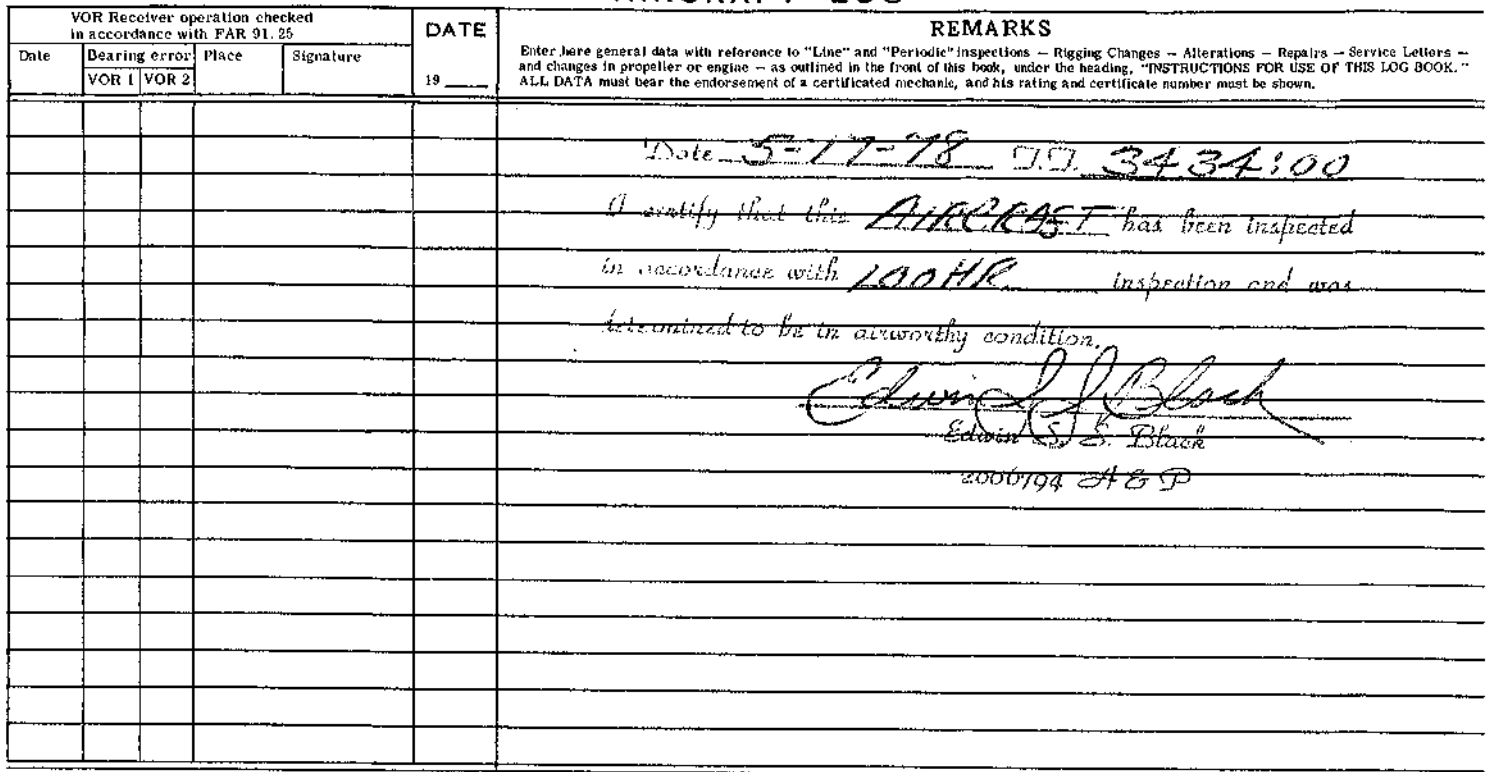 VOR Receiver operation checked
in accordance with FAR 91.25
Date
Bearing error
VOR 1 VOR 2
Place
Signature
DATE
19
REMARKS
Enter here general data with reference to "Line" and "Periodic" inspections — Rigging Changes — Alterations — Repairs — Service Letters —
and changes in propeller or engine — as outlined in the front of this book, under the heading, "INSTRUCTIONS FOR USE OF THIS LOG BOOK."
ALL DATA must bear the endorsement of a certificated mechanic, and his rating and certificate number must be shown.
Date 5-17-78 T.T. 3434:00
I certify that this AIRCRAFT has been inspected
in accordance with 100 HR inspection and was
determined to be in airworthy condition.
Edwin S. S. Black
Edwin S. S. Black
2006794 A & P